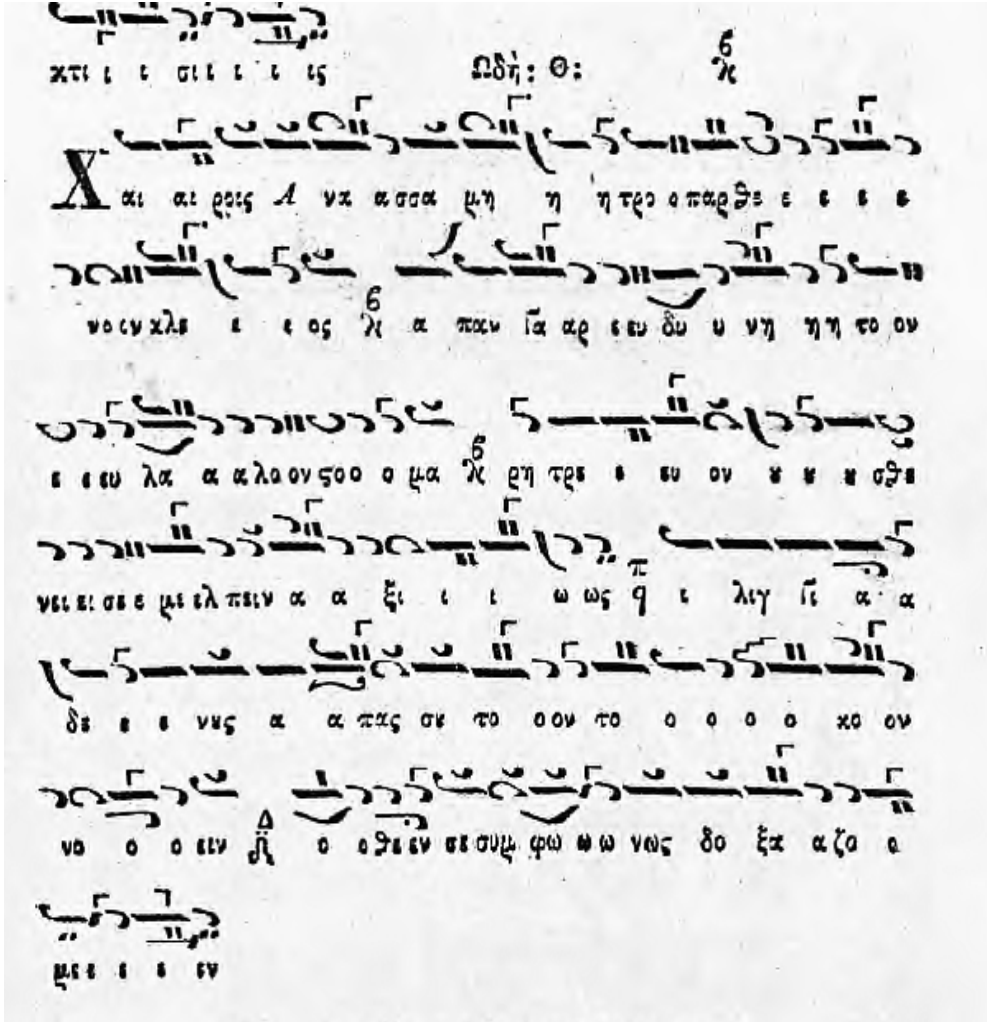 κτι ι ι σιι ι ι ις
Ωδὴ: Θ:
Χαι αι ροις Α να ασσα μη η ητρο οπαρθε ε ε ε ε
νο ενκλε ε ε ος α παν ϊα αρ ε ευ δυ υ νη ηη το ον
ε ε ευ λα α α λο ον ϛοο ο μα ρη τρε ε ευ ον ȣ ȣ ȣ σθε
νει ει σε ε με ελ πειν α α ξι ι ι ω ως π ι λιγ α α
δε ε ε νȣς α α πας σε το οον το ο ο ο ο κο ον
νο ο ο ειν Δ ο οθεεν σε συμ φω ω ω νως δο ξα αζο ο
με ε ε ε εν